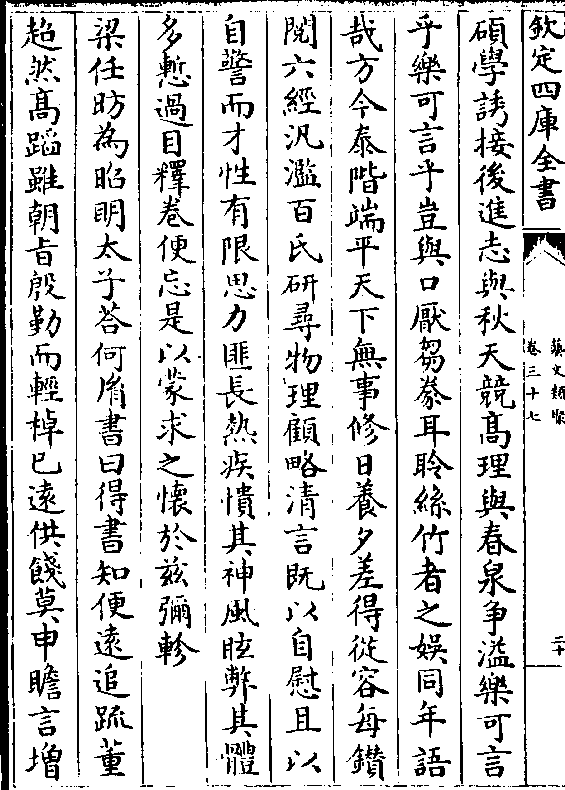 欽定四庫全書
藝文類聚
卷三十七
二十
碩學誘接後進志與秋天競髙理與春泉争溢樂可言
乎樂可言乎豈與口厭芻豢耳聆絲竹者之娛同年語
哉方今泰階端平天下無事修日養夕差得從容每鑚
閱六經汎濫百氏研尋物理顧略清言既以自慰且以
自警而才性有限思力匪長熱疾憒其神風眩弊其體
多慙過目釋卷便忘是以蒙求之懷於兹彌軫
梁任昉為昭明太子荅何𦙍書曰得書知便逺追疏董
超然髙蹈雖朝旨殷勤而輕棹已逺供餞莫申瞻言增